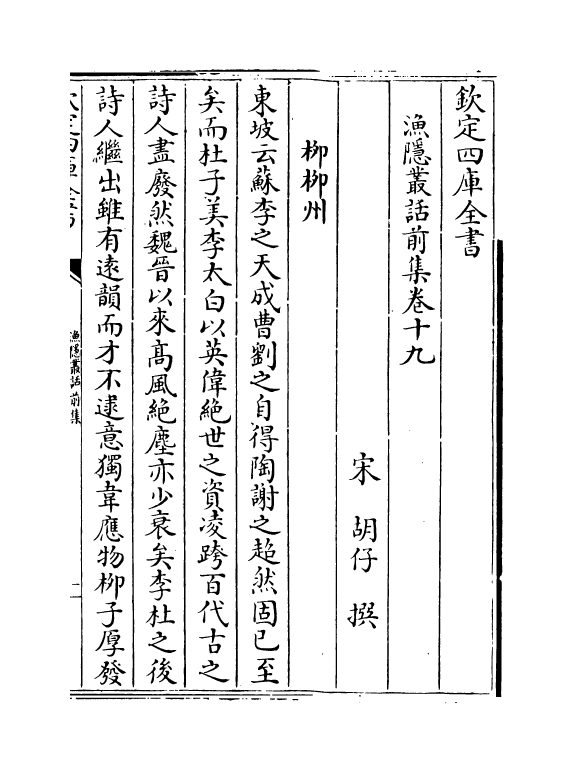 欽定四庫全書
漁隱叢話前集卷十九
宋 胡仔 撰
柳柳州
東坡云蘇李之天成曹劉之自得陶謝之超然固已至
矣而杜子美李太白以英偉絶世之資凌跨百代古之
詩人盡廢然魏晉以來髙風絶塵亦少衰矣李杜之後
詩人繼出雖有逺韻而才不逮意獨韋應物柳子厚發
欽定四庫全書
漁隱叢話前集